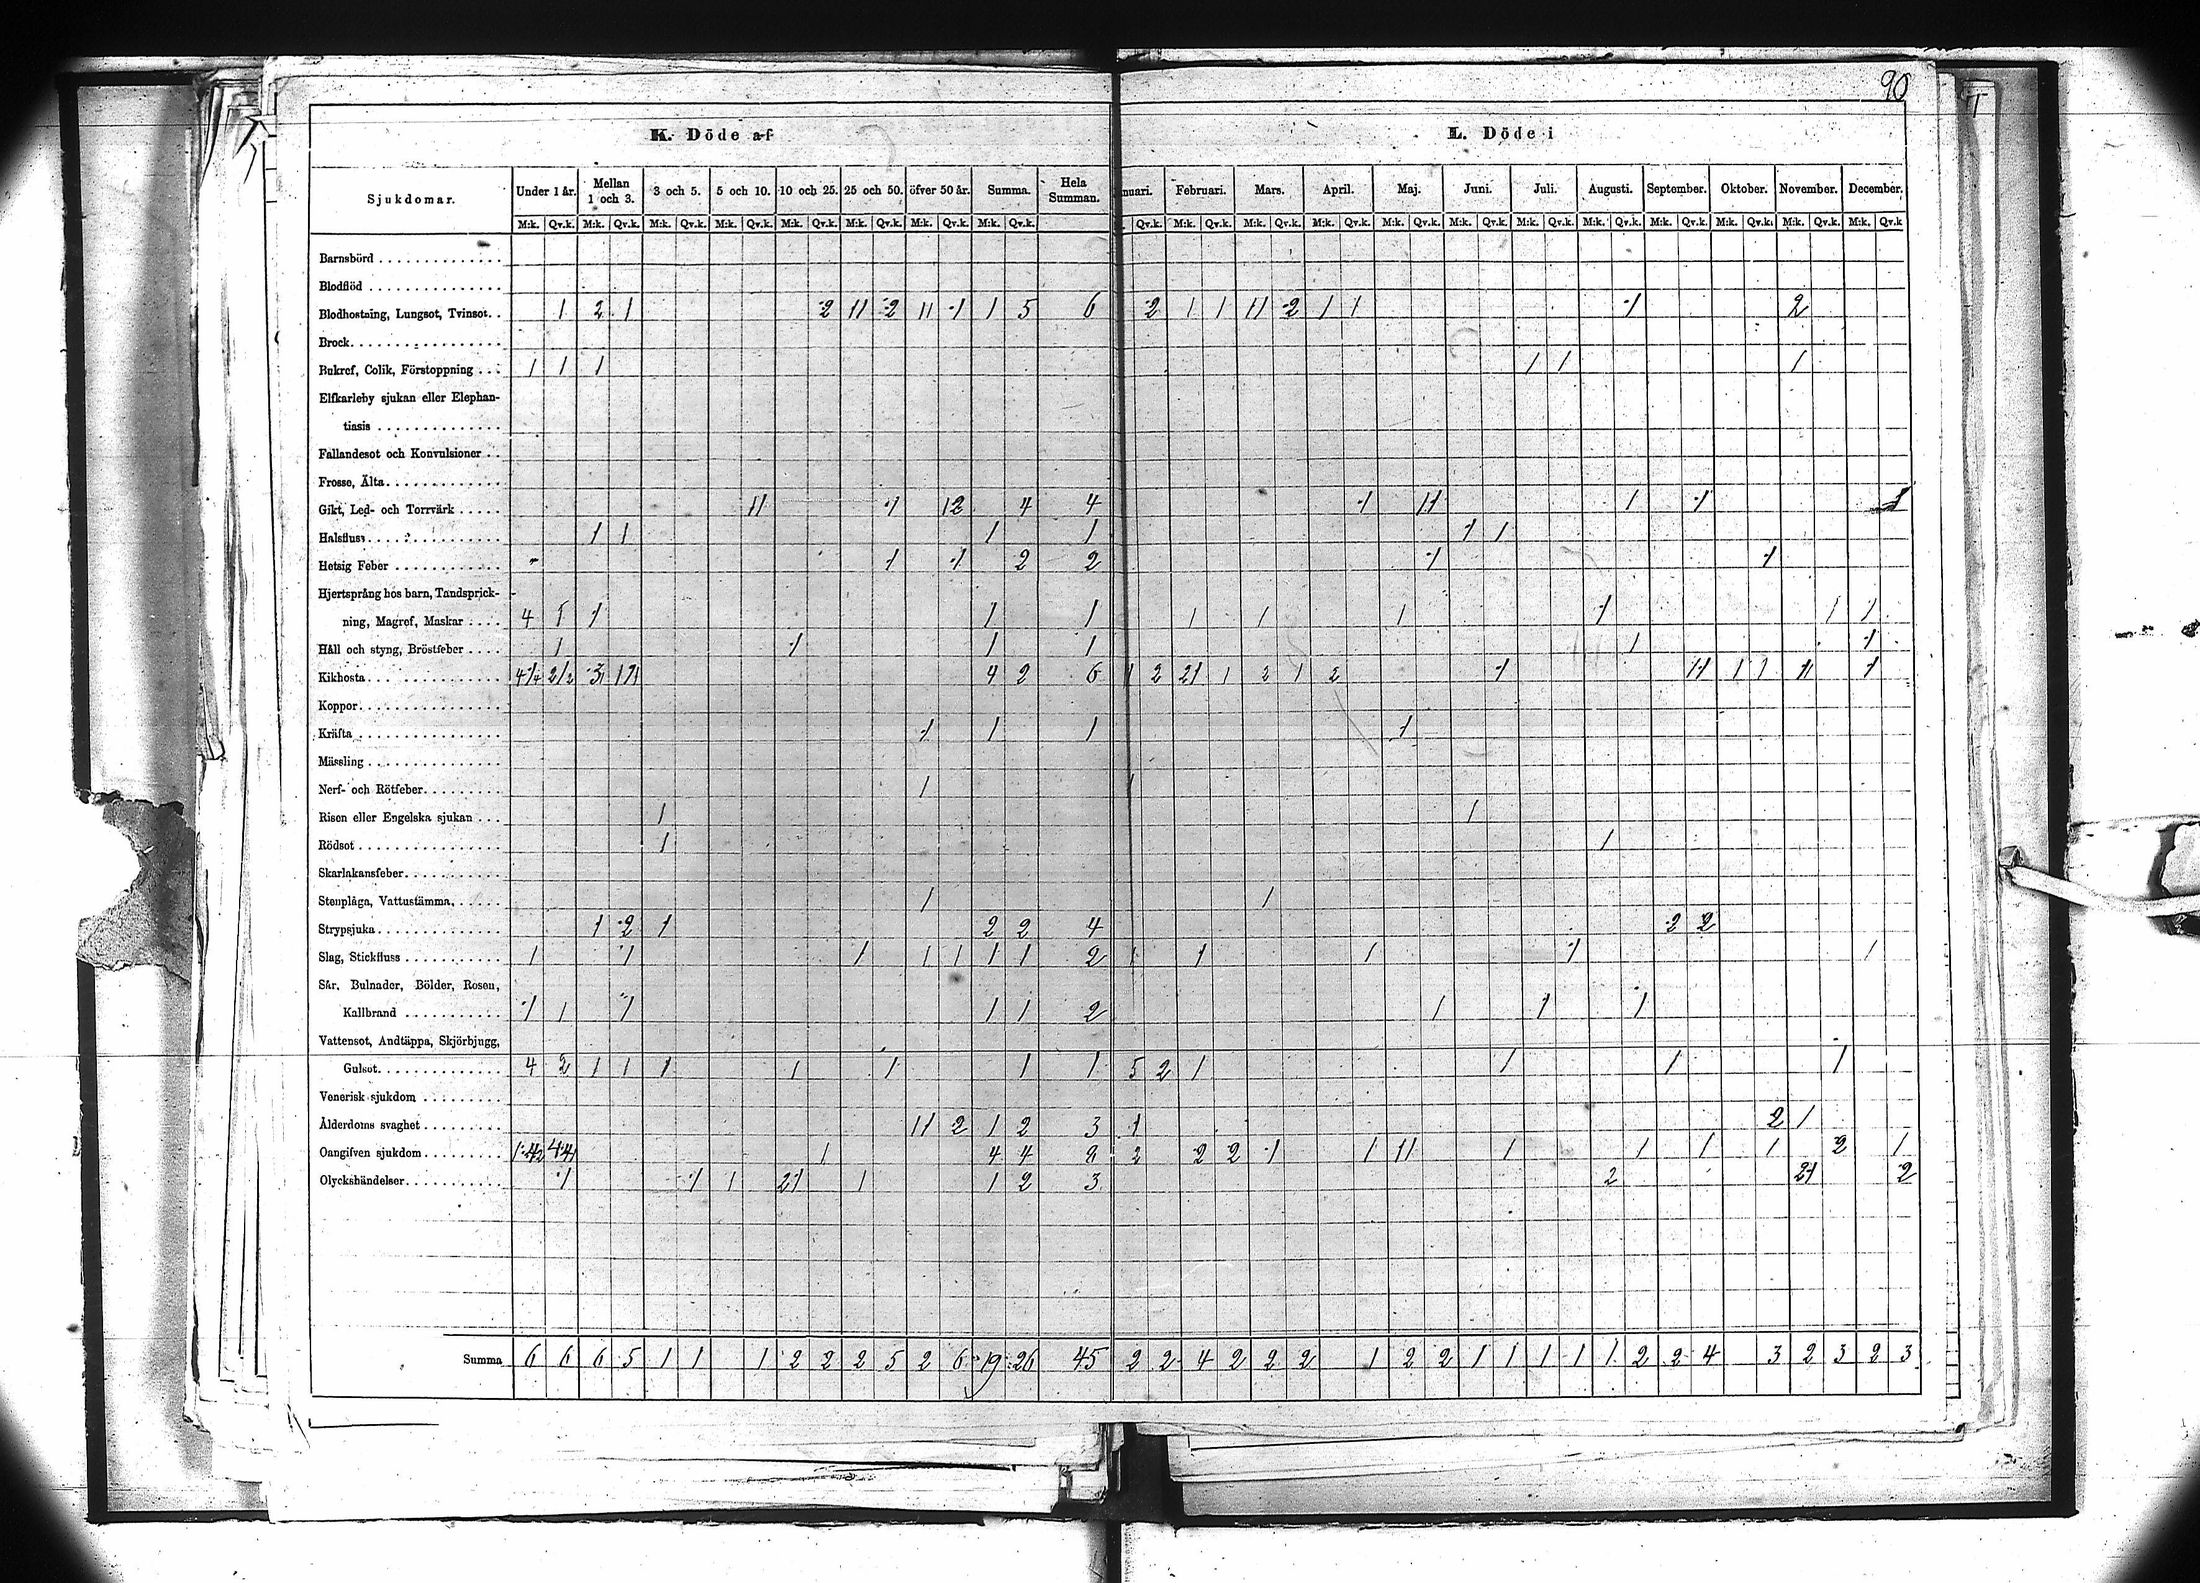 90
K. Döde af
L. Döde i
Sjukdomar. Under 1 år. Mellan 1 och 3. 3 och 5. 5 och 10. 10 och 25. 25 och 50. öfver 50 år. Summa. Hela Summan. nuari. Februari. Mars. April. Maj. Juni. Juli. Augusti. September. Oktober. November. December.
M:k. Qv.k. M:k. Qv.k. M:k. Qv.k. M:k. Qv.k. M:k. Qv.k. M:k. Qv.k. M:k. Qv.k. M:k. Qv.k. Qv.k. M:k. Qv.k. M:k. Qv.k. M:k. Qv.k. M:k. Qv.k. M:k. Qv.k. M:k. Qv.k. M:k. Qv.k. M:k. Qv.k. M:k. Qv.k. M:k. Qv.k. M:k. Qv.k
Barnsbörd
Blodflöd
Blodhostning, Lungsot, Tvinsot. 1 2 1 2 11 2 11 1 1 5 6 2 1 1 11 2 1 1 1 2
Brock
Bukref, Colik, Förstoppning 1 1 1 1 1 1
Elfkarleby sjukan eller Elephan-
tiasis
Fallandesot och Konvulsioner
Frosse, Älta
Gikt, Led- och Torrvärk 11 1 12 4 4 1 11 1 1 1
Halsfluss 1 1 1 1 1 1
Hetsig Feber 1 1 2 2 1 1
Hjertsprång hos barn, Tandsprick-
ning, Magref, Maskar 4 1 1 1 1 1 1 1 1 1 1
Håll och styng, Bröstfeber 1 1 1 1 1 1
Kikhosta 4 2 6 1 2 21 1 2 1 2 1 11 1 1 11 1
Koppor
Kräfta 1 1 1 1
Mässling
Nerf- och Rötfeber 1 1
Risen eller Engelska sjukan 1 1
Rödsot 1 1
Skarlakansfeber
Stenplåga, Vattustämma 1 1
Strypsjuka 1 2 1 2 2 4 2 2
Slag, Stickfluss 1 1 1 1 1 1 1 2 1 1 1 1 1
Sår, Bulnader, Bölder, Rosen,
Kallbrand 1 1 1 1 1 2 1 1 1
Vattensot, Andtäppa, Skjörbjugg,
Gulsot 4 2 1 1 1 1 1 1 1 5 2 1 1 1 1
Venerisk sjukdom
Ålderdoms svaghet 11 2 1 2 3 1 2 1
Oangifven sjukdom 1 4 4 8 2 2 2 1 1 11 1 1 1 1 2 1
Olyckshändelser 1 1 1 21 1 1 2 3 2 21 2
Summa 6 6 6 5 1 1 1 2 2 2 5 2 6 19 26 45 2 2 4 2 2 2 1 2 2 1 1 1 1 1 2 2 4 3 2 3 2 3